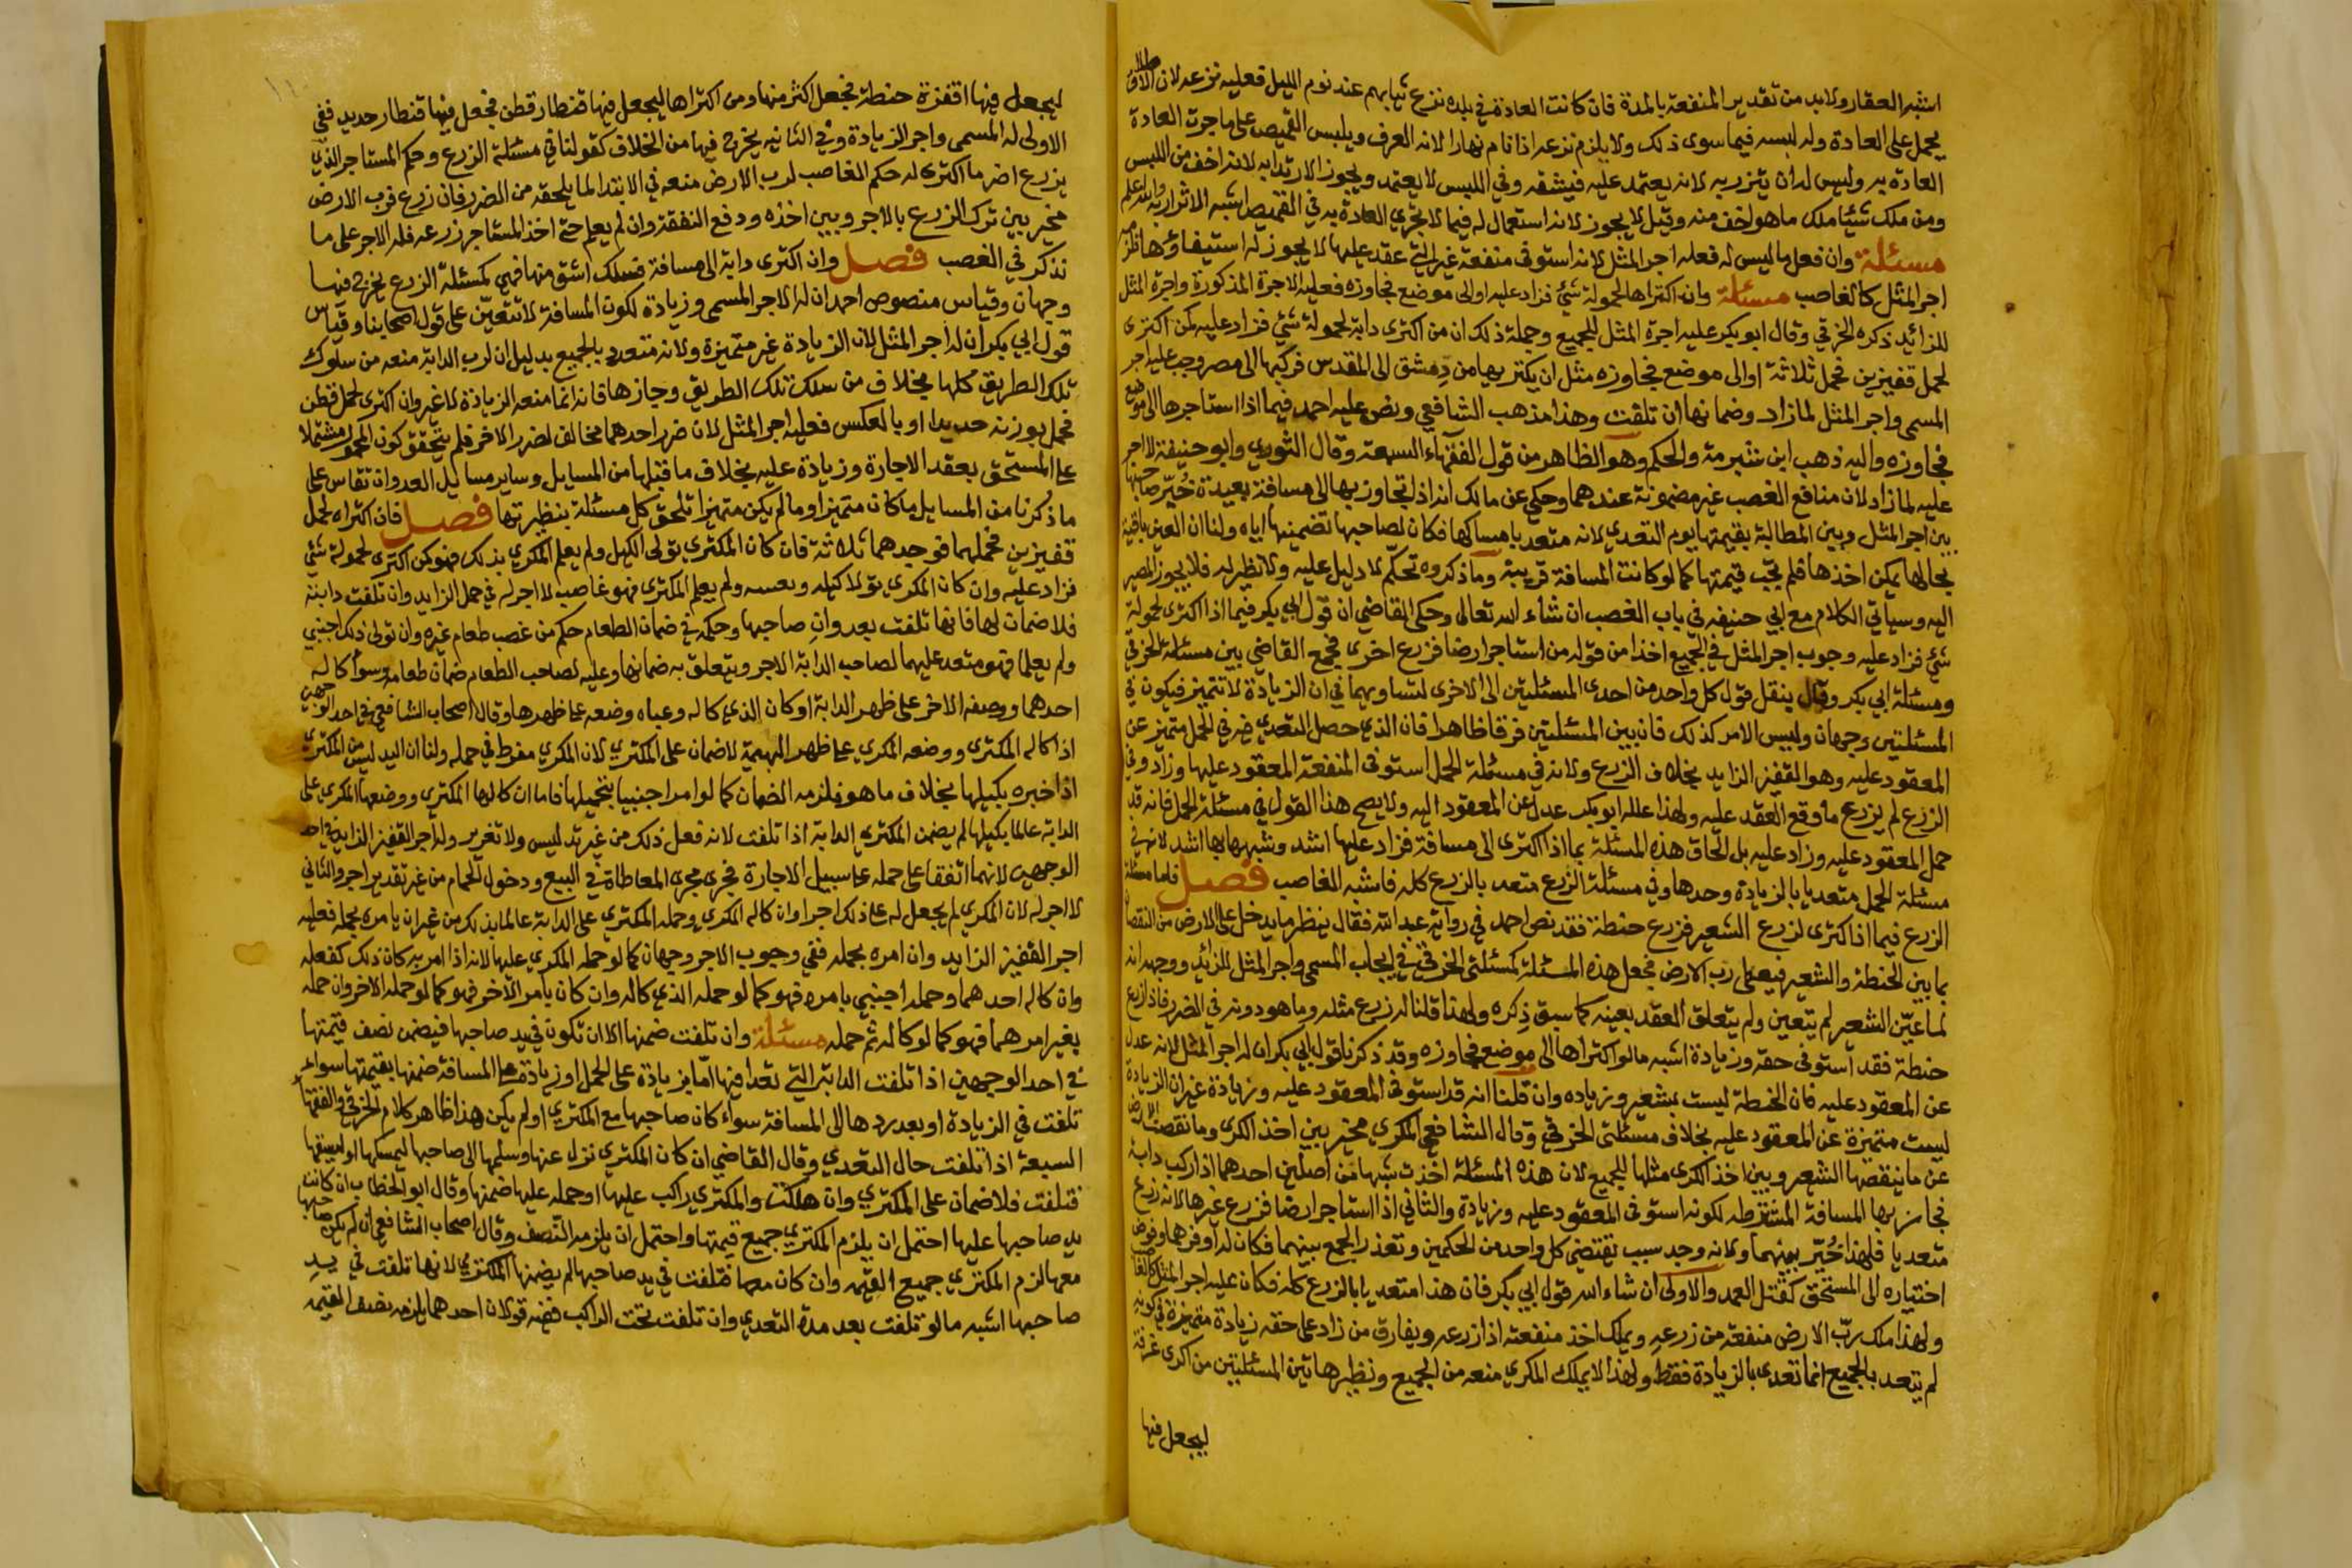 اشبه العقار ولابد من تقدير المنفعة بالمدة فان كانت العادة في بلده نزع ثيابهم عند نوم الليل فعليه نزعه لان الاطلاق
يحمل على العادة وله لبسه فيما سوى ذلك ولا يلزم نزعه اذا نام نهارا لانه العرف ويلبس القميص على ما جرت العادة
العادة به وليس له ان يتزر به لانه يعتمد عليه فيشقه وفي اللبس لا يعتمد ويجوز الارتداء به لانه اخف من اللبس
ومن ملك شيئا ملك ما هو اخف منه وقيل لا يجوز لانه استعمال له فيما لا تجري العادة به في القميص اشبه الاتزار به والله اعلم
مسئلة وان فعل ما ليس له فعله اجر المثل لانه استوفى منفعة غير التي عقد عليها لا يجوز له استيفاؤها فلزمه
اجر المثل كالغاصب مسئلة وان اكتراها لحمولة شئ فزاد عليه او الى موضع فجاوزه فعليه الاجرة المذكورة واجرة المثل
للزائد ذكره الخرقي وقال ابو بكر عليه اجرة المثل للجميع وجملة ذلك ان من اكترى دابة لحمولة شئ فزاد عليه كمن اكترى
لحمل قفيزين فحمل ثلاثة او الى موضع فجاوزه مثل ان يكتريها من دمشق الى المقدس فركبها الى مصر وجب عليه اجر
المسمى واجر المثل لما زاد وضمانها ان تلفت وهذا مذهب الشافعي ونص عليه احمد فيما اذا استاجرها الى موضع
فجاوزه واليه ذهب ابن شبرمة والحكم وهو الظاهر من قول الفقهاء السبعة وقال الثوري وابو حنيفة لا اجر
عليه لما زاد لان منافع الغصب غير مضمونة عندهما وحكي عن مالك انه اذا تجاوز بها الى مسافة بعيدة خير صاحبها
بين اجر المثل وبين المطالبة بقيمتها يوم التعدي لانه متعد بامساكها فكان لصاحبها تضمينها اياه ولنا ان العين باقية
بحالها يمكن اخذها فلم تجب قيمتها كما لو كانت المسافة قريبة وما ذكروه تحكم لا دليل عليه ولا نظير له فلا يجوز المصير
اليه وسياتي الكلام مع ابي حنيفه في باب الغصب ان شاء الله تعالى وحكى القاضي ان قول ابي بكر فيما اذا اكترى لحمولة
شئ فزاد عليه وجوب اجر المثل في الجميع اخذا من قوله من استاجر ارضا فزرع اخرى فجمع القاضي بين مسئلة الخرقي
ومسئلة ابي بكر وقال ينقل قول كل واحد من احدى المسئلتين الى الاخرى لتساويهما في ان الزيادة لا تتميز فيكون في
المسئلتين وجهان وليس الامر كذلك فان بين المسئلتين فرقا ظاهرا فان الذي حصل التعدي فيه في الحمل متميز عن
المعقود عليه وهو القفيز الزايد بخلاف الزرع ولانه في مسئلة الحمل استوفى المنفعة المعقود عليها وزاد وفي
الزرع لم يزرع ما وقع العقد عليه ولهذا علله ابو بكر عدل عن المعقود اليه ولا يصح هذا القول في مسئلة الحمل فانه قد
حمل المعقود عليه وزاد عليه بل الحاق هذه المسئلة بما اذا اكترى الى مسافة فزاد عليها اشد وشبهها بها اشد لانه في
مسئلة الحمل متعديا بالزيادة وحدها وفي مسئلة الزرع متعد بالزرع كله فاشبه الغاصب فصل فاما مسئلة
الزرع فيما اذا اكترى لزرع الشعير فزرع حنطة فقد نص احمد في رواية عبد الله فقال ينظر ما يدخل على الارض من النقصان
ما بين الحنطة والشعير فيعطى رب الارض فجعل هذه المسئلة كمسئلتي الخرقي في ايجاب المسمى واجر المثل للزائد ووجهه انه
لما عين الشعير لم يتعين ولم يتعلق العقد بعينه كما سبق ذكره ولهذا قلنا له زرع مثله وما هو دونه في الضرر فاذا زرع
حنطة فقد استوفى حقه وزيادة اشبه ما لو اكتراها الى موضع فجاوزه وقد ذكرنا قول ابي بكر ان له اجر المثل لانه عدل
عن المعقود عليه فان الحنطة ليست بشعير وزياده وان قلنا انه قد استوفى المعقود عليه وزيادة غير ان الزيادة
ليست متميزة عن المعقود عليه بخلاف مسئلتى الخرقي وقال الشافعي المكري مخير بين اخذ الكرى وما نقصت الارض
عن ما ينقصها الشعير وبين اخذ الكرى مثلها للجميع لان هذه المسئلة اخذت شبها من اصلين احدهما اذا ركب دابة
فجاز بها المسافة المشترطه لكونه استوفى المعقود عليه وزيادة والثاني اذا استاجر ارضا فزرع غيرها لانه زرع
متعديا فلهذا خير بينهما ولانه وجد سبب تقتضي كل واحد من الحكمين وتعذر الجمع بينهما فكان له اوفرهما وفوض
اختياره الى المستحق كقتل العمد والاولى ان شاء الله قول ابي بكر فان هذا متعديا بالزرع كله فكان عليه اجر المثل كالغاصب
ولهذا ملك رب الارض منفعته من زرعه ويملك اخذ منفعته اذا زرعه ويفارق من زاد على حقه زيادة متميزة في كونه
لم يتعد بالجميع انما تعدى بالزيادة فقط ولهذا لا يملك المكري منعه من الجميع ونظير هاتين المسئلتين من اكرى غرفة
ليجعل فيها
ليجعل فيها اقفزة حنطة فجعل اكثر منها ومن اكتراها ليجعل فيها قنطار قطن فجعل فيها قنطار حديد ففي
الاولى له المسمى واجر الزيادة وفي الثانيه يخرج فيها من الخلاف كقولنا في مسئلة الزرع وحكم المستاجر الذي
يزرع اضر ما اكترى له حكم الغاصب لرب الارض منعه في الابتدا لما يلحقه من الضرر فان زرع فرب الارض
مخير بين ترك الزرع بالاجر وبين اخذه ودفع النفقة وان لم يعلم حتى اخذ المستاجر زرعه فله الاجر على ما
نذكر في الغصب فصل وان اكترى دابة الى مسافة فسلك اشق منها فهي كمسئلة الزرع يخرج فيها
وجهان وقياس منصوص احمد ان له الاجر المسمى وزيادة لكون المسافة لا تتعين على قول اصحابنا وقياس
قول ابي بكر ان له اجر المثل لان الزيادة غير متميزة ولانه متعد بالجميع بدليل ان لرب الدابة منعه من سلوك
تلك الطريق كلها بخلاف من سلك تلك الطريق وجازها فانه انما منعه الزيادة لا غير وان اكترى لحمل قطن
فحمل بوزنه حديدا او بالعكس فعليه اجر المثل لان ضرر احدهما مخالف لضرر الاخر فلم يتحقق كون المحمول مشتملا
على المستحق بعقد الاجارة وزيادة عليه بخلاف ما قبلها من المسايل وساير مسايل العدوان تقاس على
ما ذكرنا من المسايل ما كان متميزا وما لم يكن متميزا تلحق كل مسئلة بنظيرتها فصل فان اكتراه لحمل
قفيزين فحملهما فوجدهما ثلاثة فان كان المكترى تولى الكيل ولم يعلم المكري بذلك فهو كمن اكترى لحمولة شئ
فزاد عليه وان كان المكري تولا كيله وتعبيه ولم يعلم المكترى فهو غاصب لا اجر له في حمل الزايد وان تلفت دابته
فلا ضمان لها فانها تلفت بعدوان صاحبها وحكمه في ضمان الطعام حكم من غصب طعام غيره وان تولى ذلك اجنبي
ولم يعلما فهو متعد عليهما لصاحب الدابة الاجر ويتعلق به ضمانها وعليه لصاحب الطعام ضمان طعامه وسوا كاله
احدهما ووضعه الاخر على ظهر الدابة او كان الذي كاله وعباه وضعه على ظهرها وقال اصحاب الشافعي في احد الوجهين
اذا كاله المكترى ووضعه المكري على ظهر البهيمة لا ضمان على المكتري لان المكري مفرط في حمله ولنا ان اليد ليس من المكتري
اذا خبره بكيلها بخلاف ما هو فلزمه الضمان كما لو امر اجنبيا بتحميلها فاما ان كالها المكتري ووضعها المكري على
الدابة عالما بكيلها لم يضمن المكتري الدابة اذا تلفت لانه فعل ذلك من غير تدليس ولا تغرير وله اجر القفيز الزايد في احد
الوجهين لانهما اتفقا على حمله على سبيل الاجارة فجرى مجرى المعاطاة في البيع ودخول الحمام من غير تقدير اجر والثاني
لا اجر له لان المكري لم يجعل له على ذلك اجرا وان كاله المكري وحمله المكتري على الدابة عالما بذلك من غير ان يامره بحمله فعليه
اجر القفيز الزايد وان امره بحمله ففي وجوب الاجر وجهان كما لو حمله المكري عليها لانه اذا امر به كان ذلك كفعله
وان كاله احدهما وحمله اجنبي بامره فهو كما لو حمله الذي كاله وان كان بامر الاخر فهو كما لو حمله الاخر وان حمله
بغير امرهما فهو كما لو كاله ثم حمله مسئلة وان تلفت ضمنها الا ان تكون في يد صاحبها فيضمن نصف قيمتها
في احد الوجهين اذا تلفت الدابة التي تعدا فيها اما بزيادة على الحمل او زيادة على المسافة ضمنها بقيمتها سواء
تلفت في الزيادة او بعد ردها الى المسافة سواء كان صاحبها مع المكتري او لم يكن هذا ظاهر كلام الخرقي والفقهاء
السبعة اذا تلفت حال التعدي وقال القاضي ان كان المكتري نزل عنها وسلمها الى صاحبها ليمسكها او ليسقيها
فتلفت فلا ضمان على المكتري وان هلكت والمكتري راكب عليها او حمله عليها ضمنها وقال ابو الخطاب ان كانت
يد صاحبها عليها احتمل ان يلزم المكتري جميع قيمتها واحتمل ان يلزمه النصف وقال اصحاب الشافعي ان لم يكن صاحبها
معها لزم المكتري جميع القيمه وان كان معها فتلفت في يد صاحبها لم يضمنها المكتري لانها تلفت في يد
صاحبها اشبه ما لو تلفت بعد مدة التعدي وان تلفت تحت الراكب ففيه قولان احدهما يلزمه نصف القيمه